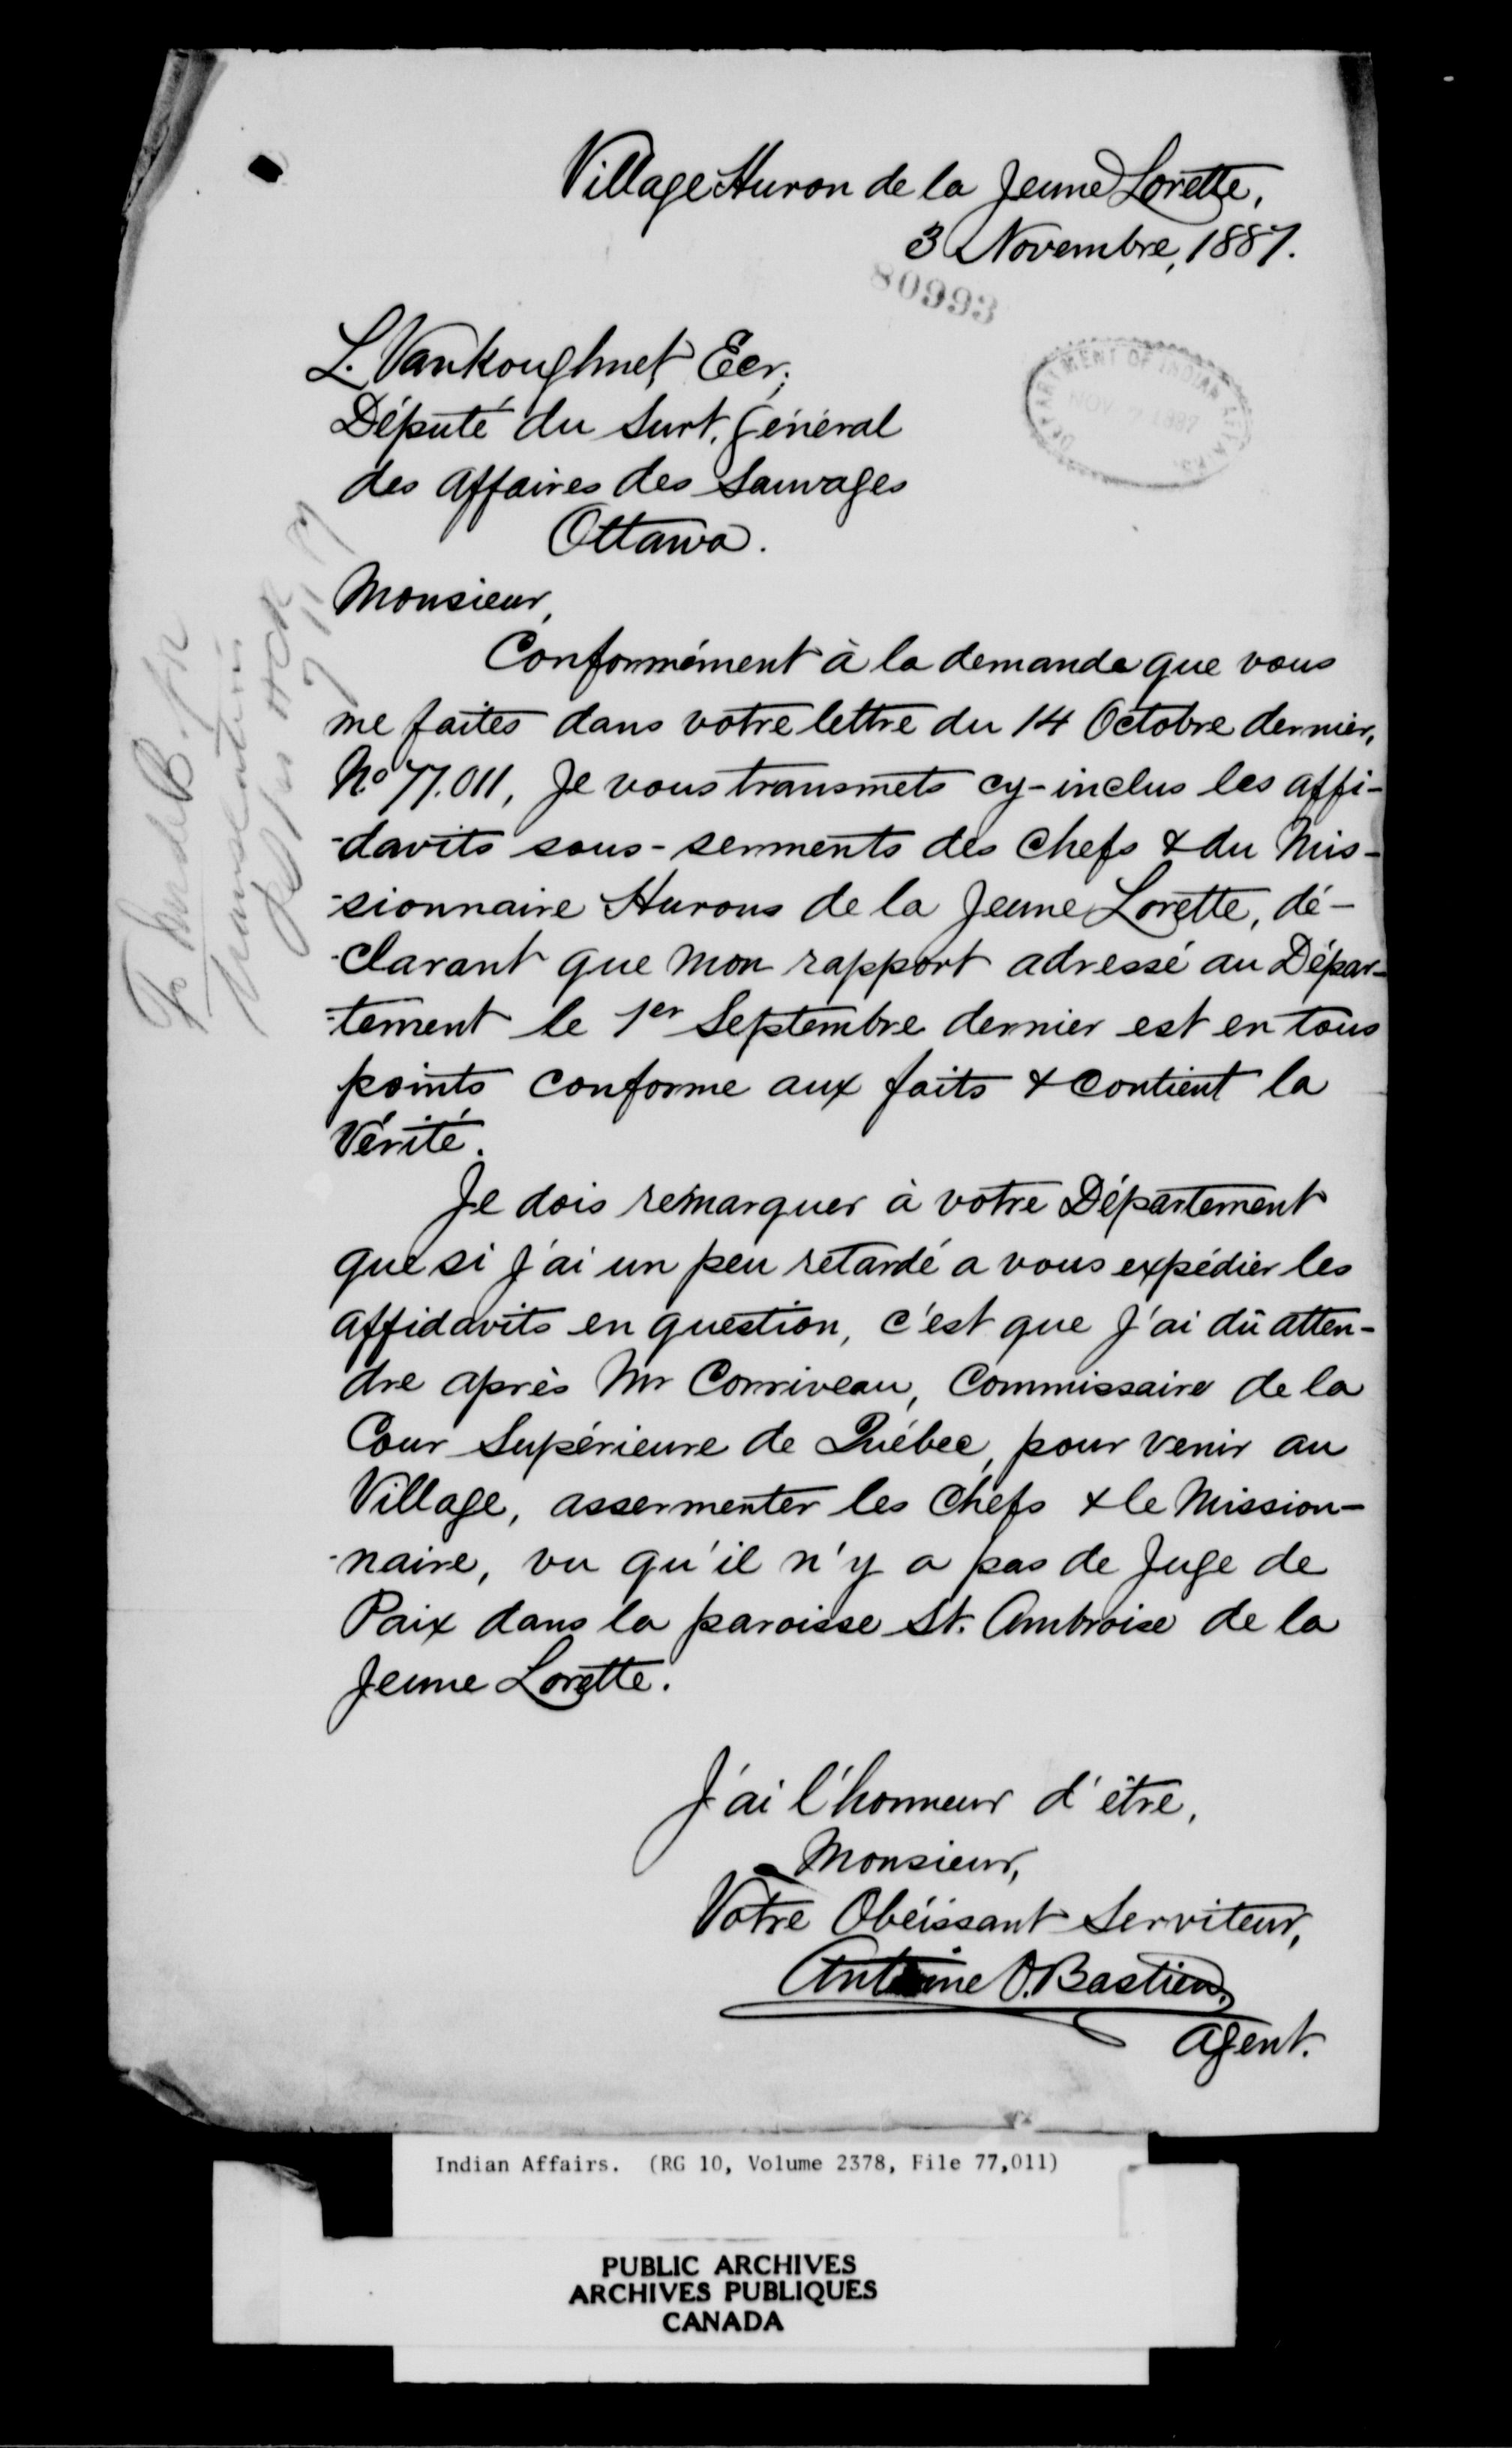 Village Huron de la Jeune Lorette,
3 Novembre, 1887.
80993
DEPARTMENT OF INDIAN AFFAIRS.
NOV 7 1887
L. Vankoughnet Ecr,
Député du Surt. Général
des affaires des Sauvages
Ottawa.
Monsieur,
Conformément à la demande que vous
me faites dans votre lettre du 14 Octobre dernier,
No 77.011, Je vous transmets cy-inclus les affi-
-davits sous-serments des Chefs & du Mis-
-sionnaire Hurons de la Jeune Lorette, dé-
-clarant que mon rapport adressé au Dépar-
-tement le 1er Septembre dernier est en tous
points conforme aux faits & contient la
Vérité.
Je dois remarquer à votre Département
que si J'ai un peu retardé a vous expédier les
affidavits en question, c'est que J'ai dû atten-
dre après Mr Corriveau, Commissaire de la
Cour Supérieure de Québec, pour venir au
Village, assermenter les Chefs & le Mission-
-naire, vu qu'il n'y a pas de Juge de
Paix dans la paroisse St. Ambroise de la
Jeune Lorette.
J'ai l'honneur d'être,
Monsieur,
Votre Obéissant Serviteur,
Antoine O. Bastien,
Agent.
Indian Affairs. (RG 10, Volume 2378, File 77,011)
PUBLIC ARCHIVES
ARCHIVES PUBLIQUES
CANADA